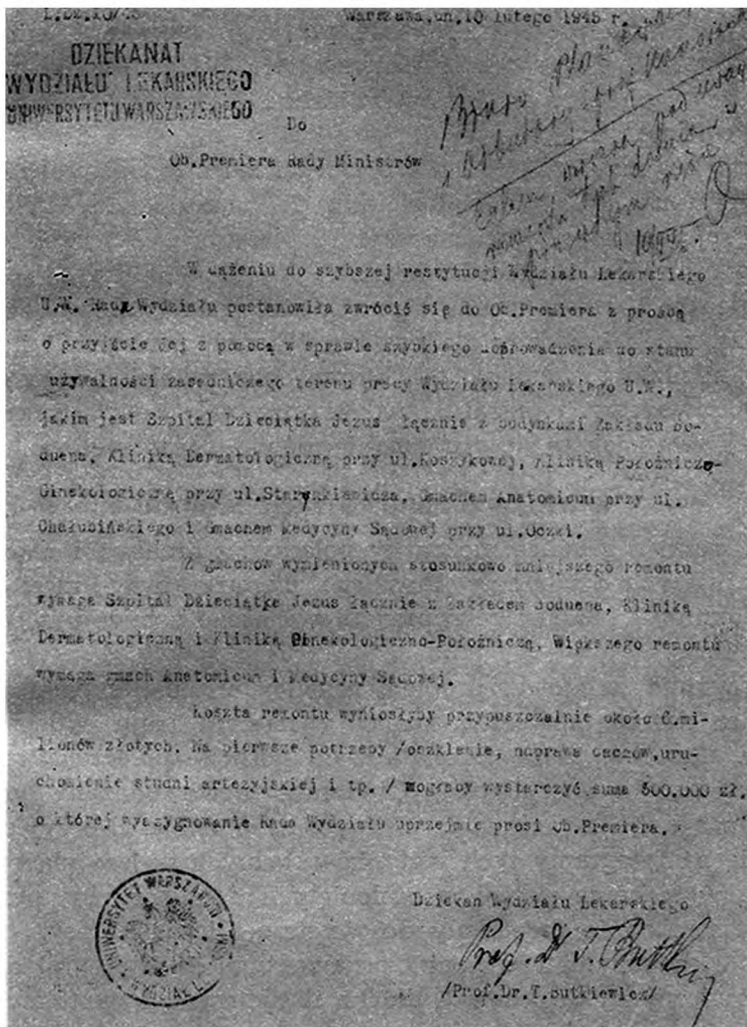 L.Dz.10/45
Warszawa,dn.10 lutego 1945 r.
DZIEKANAT
WYDZIAŁU LEKARSKIEGO
UNIWERSYTETU WARSZAWSKIEGO
Do
Ob.Premiera Rady Ministrów
Biuro
W dążeniu do szybszej restytucji Wydziału Lekarskiego
U.W. Rada Wydziału postanowiła zwrócić się do Ob.Premiera z prośbą
o przyjście Jej z pomocą w sprawie szybkiego doprowadzenia do stanu
używalności zasadniczego terenu pracy Wydziału Lekarskiego U.W.,
jakim jest Szpital Dzieciątka Jezus łącznie z budynkami Zakładu Bo-
duena, Kliniką Dermatologiczną przy ul.Koszykowej, Kliniką Położniczo-
Ginekologiczną przy ul.Starynkiewicza, Gmachem Anatomicum przy ul.
Chałubińskiego i Gmachem Medycyny Sądowej przy ul.Oczki.
Z gmachów wymienionych stosunkowo mniejszego remontu
wymaga Szpital Dzieciątka Jezus łącznie z Zakładem Boduena, Kliniką
Dermatologiczną i Kliniką Ginekologiczno-Położniczą, Większego remontu
wymaga gmach Anatomicum i Medycyny Sądowej.
Koszta remontu wyniosłyby przypuszczalnie około 6.mi-
lionów złotych. Na pierwsze potrzeby /oszklenie, naprawa dachów,uru-
chomienie studni artezyjskiej i tp. / mogłaby wystarczyć suma 500.000 zł.
o której wyasygnowanie Rada Wydziału uprzejmie prosi Ob.Premiera.
UNIWERSYTET WARSZAWSKI
WYDZIAŁ L
Dziekan Wydziału Lekarskiego
Prof. Dr T. Butkiewicz
/Prof.Dr.T.Butkiewicz/